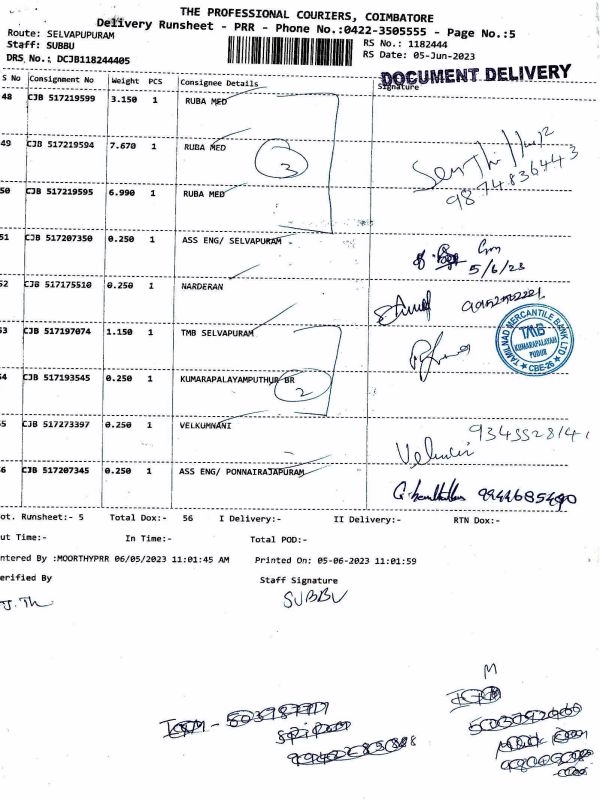 THE PROFESSIONAL COURIERS, COIMBATORE
Delivery Runsheet - PRR - Phone No.:0422-3505555 - Page No.:5
Route: SELVAPUPURAM
Staff: SUBBU
RS No.: 1182444
DRS. No.: DCJB118244405
RS Date: 05-Jun-2023
DOCUMENT DELIVERY
S No Consignment No Weight PCS Consignee Details Signature
48 CJB 517219599 3.150 1 RUBA MED
49 CJB 517219594 7.670 1 RUBA MED
3
Senthil
9874836443
50 CJB 517219595 6.990 1 RUBA MED
51 CJB 517207350 0.250 1 ASS ENG/ SELVAPURAM
5/6/23
52 CJB 517175510 0.250 1 NARDERAN
53 CJB 517197074 1.150 1 TMB SELVAPURAM
TAMIL NAD MERCANTILE BANK LTD
TMB
KUMARAPALAYAM
PUDUR
CBE-26
54 CJB 517193545 0.250 1 KUMARAPALAYAMPUTHUR BR
2
55 CJB 517273397 0.250 1 VELKUMNANI
56 CJB 517207345 0.250 1 ASS ENG/ PONNAIRAJAPURAM
ot. Runsheet:- 5 Total Dox:- 56 I Delivery:- II Delivery:- RTN Dox:-
ut Time:- In Time:- Total POD:-
ntered By :MOORTHYPRR 06/05/2023 11:01:45 AM Printed On: 05-06-2023 11:01:59
erified By Staff Signature
SUBBU
M